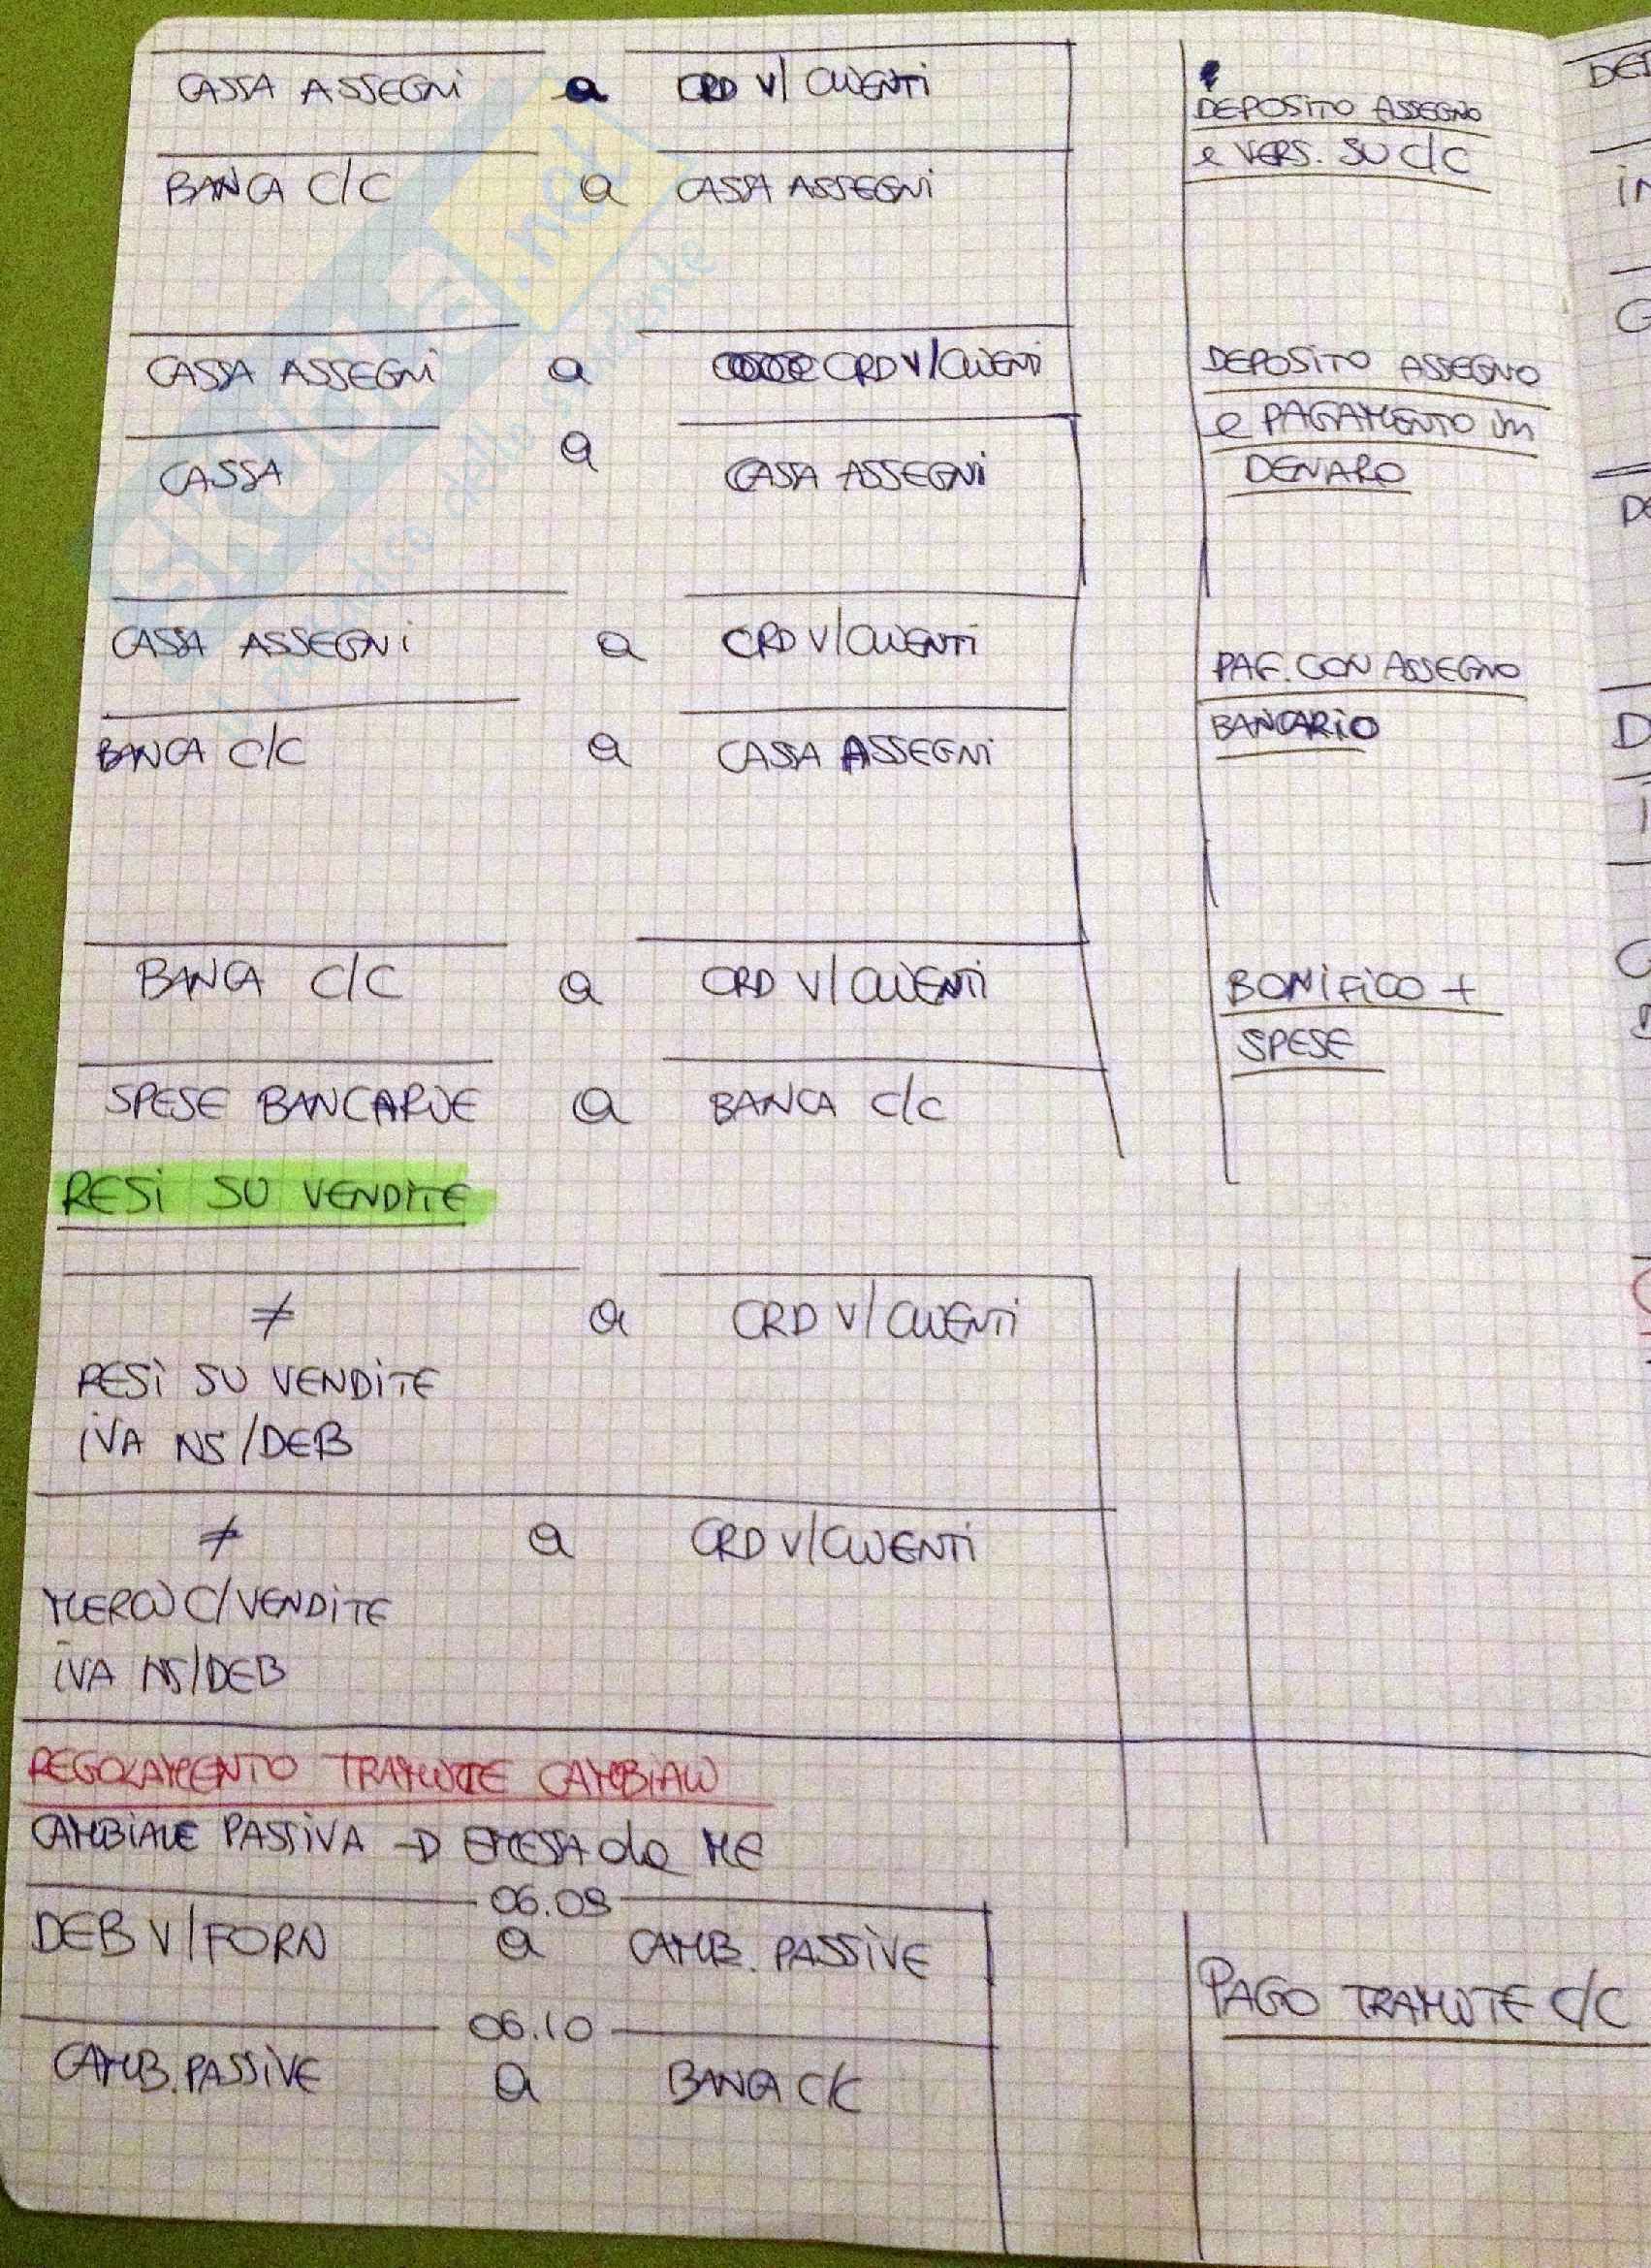 CASSA ASSEGNI a CRD V/ CLIENTI
DEPOSITO ASSEGNO
e VERS. SU C/C
BANCA C/C a CASSA ASSEGNI
CASSA ASSEGNI a CRD V/CLIENTI
DEPOSITO ASSEGNO
e PAGAMENTO in
DENARO
CASSA a CASSA ASSEGNI
CASSA ASSEGNI a CRD V/CLIENTI
PAG. CON ASSEGNO
BANCARIO
BANCA C/C a CASSA ASSEGNI
BANCA C/C a CRD V/CLIENTI
BONIFICO +
SPESE
SPESE BANCARIE a BANCA C/C
RESI SU VENDITE
≠ a CRD V/CLIENTI
RESI SU VENDITE
IVA NS/DEB
≠ a CRD V/CLIENTI
MERCI C/VENDITE
IVA NS/DEB
REGOLAMENTO TRAMITE CAMBIALI
CAMBIALE PASSIVA → EMESSA da ME
06.09
DEB V/FORN a CAMB. PASSIVE
PAGO TRAMITE C/C
06.10
CAMB. PASSIVE a BANCA C/C
SKUOLA.net
il paradiso dello studente